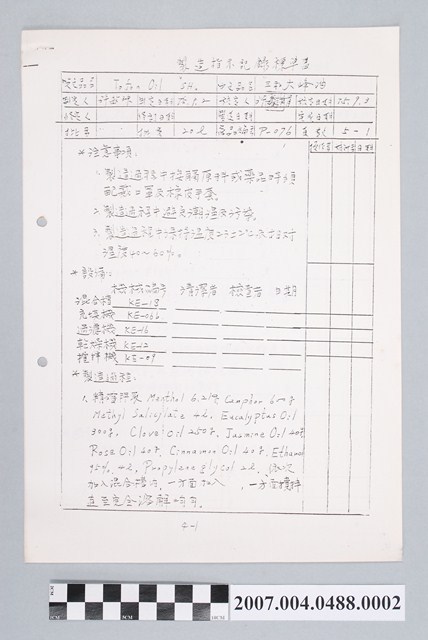 製造指示記錄標準書
英文品名 Tofon Oil "S.H." 中文品名 三點大峰油
制定人 制定日期 75.9.2 核定人 核定日期 75.9.3
修定人 修訂日期
批号 批量 20ℓ 藥品編号 P-076 頁数 5-1
操作者 核對者 日期
*注意事項:
1. 製造過程中接觸原料或藥品時須
配戴口罩及橡皮手套。
2. 製造過程中避免潮濕及污染。
3. 製造過程中保持溫度22~27℃相對
濕度40~60%。
*設備:
機械編号 清潔者 檢查者 日期
混合槽 KE-18
充填機 KE-066
過濾機 KE-16
乾燥機 KE-12
攪拌機 KE-09
*製造過程:
1. 精確秤取 Menthol 6.2kg Camphor 600g
Methyl Salicylate 4ℓ, Eucalyptus Oil
300g, Clove Oil 250g, Jasmine Oil 40g
Rosa Oil 40g, Cinnamon Oil 40g, Ethanol
95% 4ℓ, Propylene glycol 2ℓ, 依次
加入混合槽内, 一方面加入, 一方面攪拌
直至完全溶解均勻。
5-1
2007.004.0488.0002